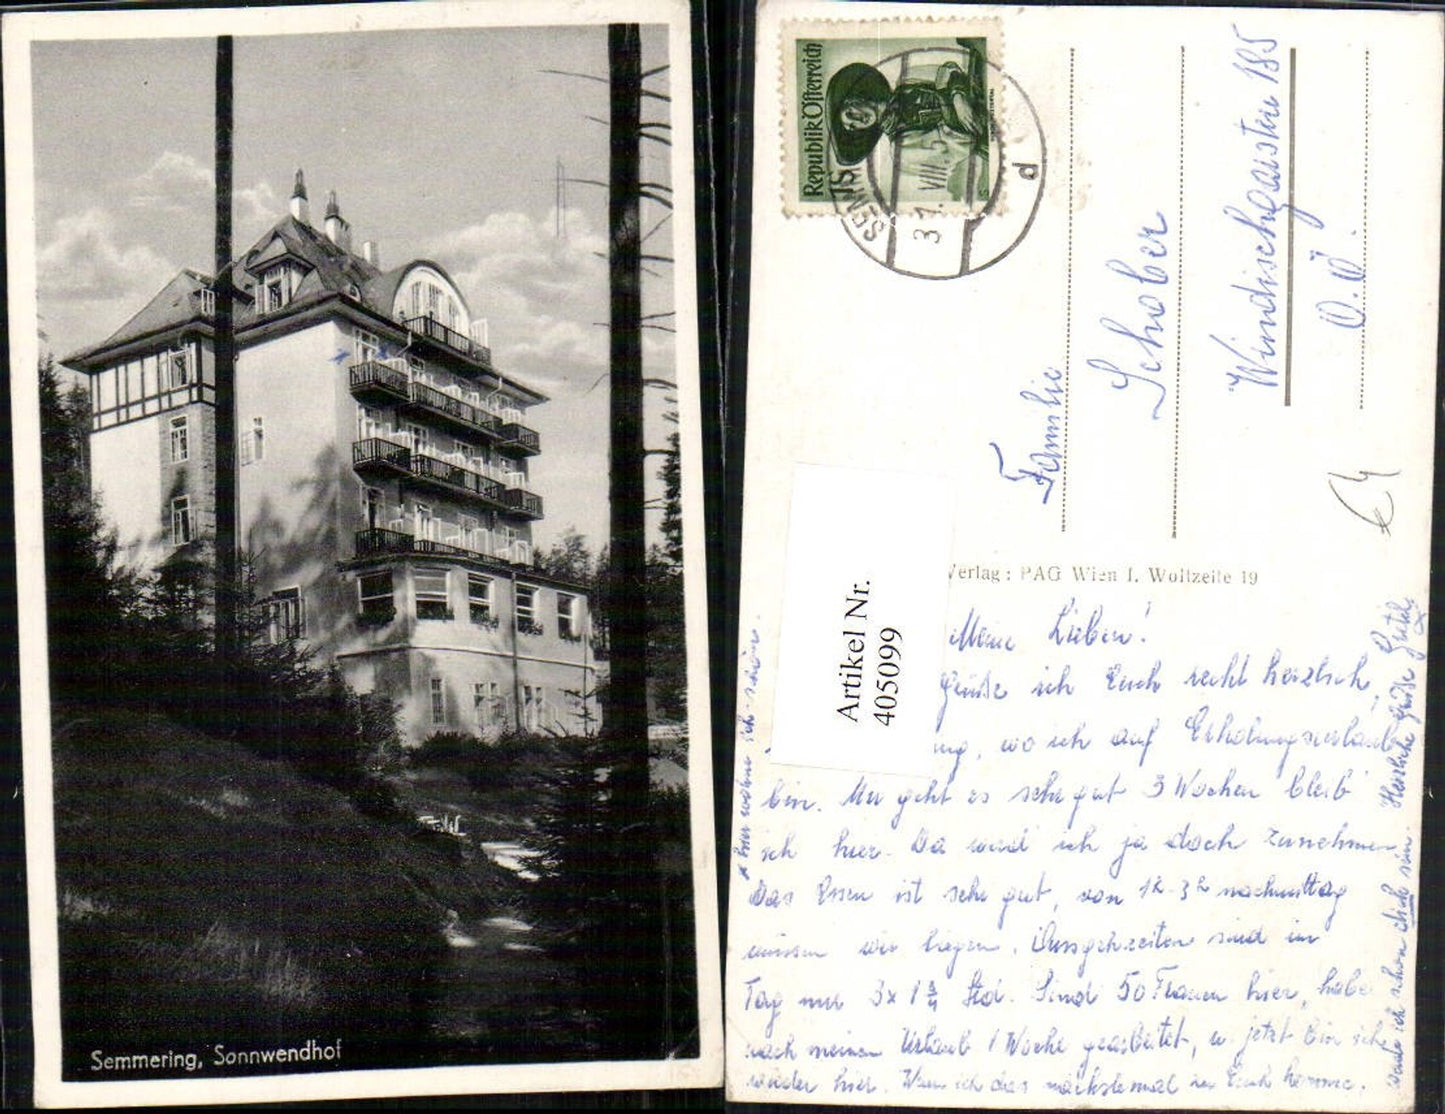 Semmering, Sonnwendhof
Republik Österreich
3 . VIII. 5
d
Familie
Schober
Windischgarsten 185
O.Ö.
Verlag: PAG Wien I. Wollzeile 19
Artikel Nr.
405099
Meine Lieben!
Grüße ich Euch recht herzlich,
wo ich auf Erholungsurlaub
bin. Mir geht es sehr gut 3 Wochen bleib
ich hier. Da werd ich ja doch zunehmen
Das Essen ist sehr gut, von 1h-3h nachmittag
müssen wir liegen. Ausgehzeiten sind im
Tag nur 3x 1 3/4 Std. Sind 50 Frauen hier, habe
nach meinen Urlaub 1 Woche gearbeitet, u. jetzt bin ich
wieder hier. Wenn ich das nächstemal zu Euch komme,
werde ich schon dick sein. Herzliche Grüße Gretel
x hier wohne ich. schön.